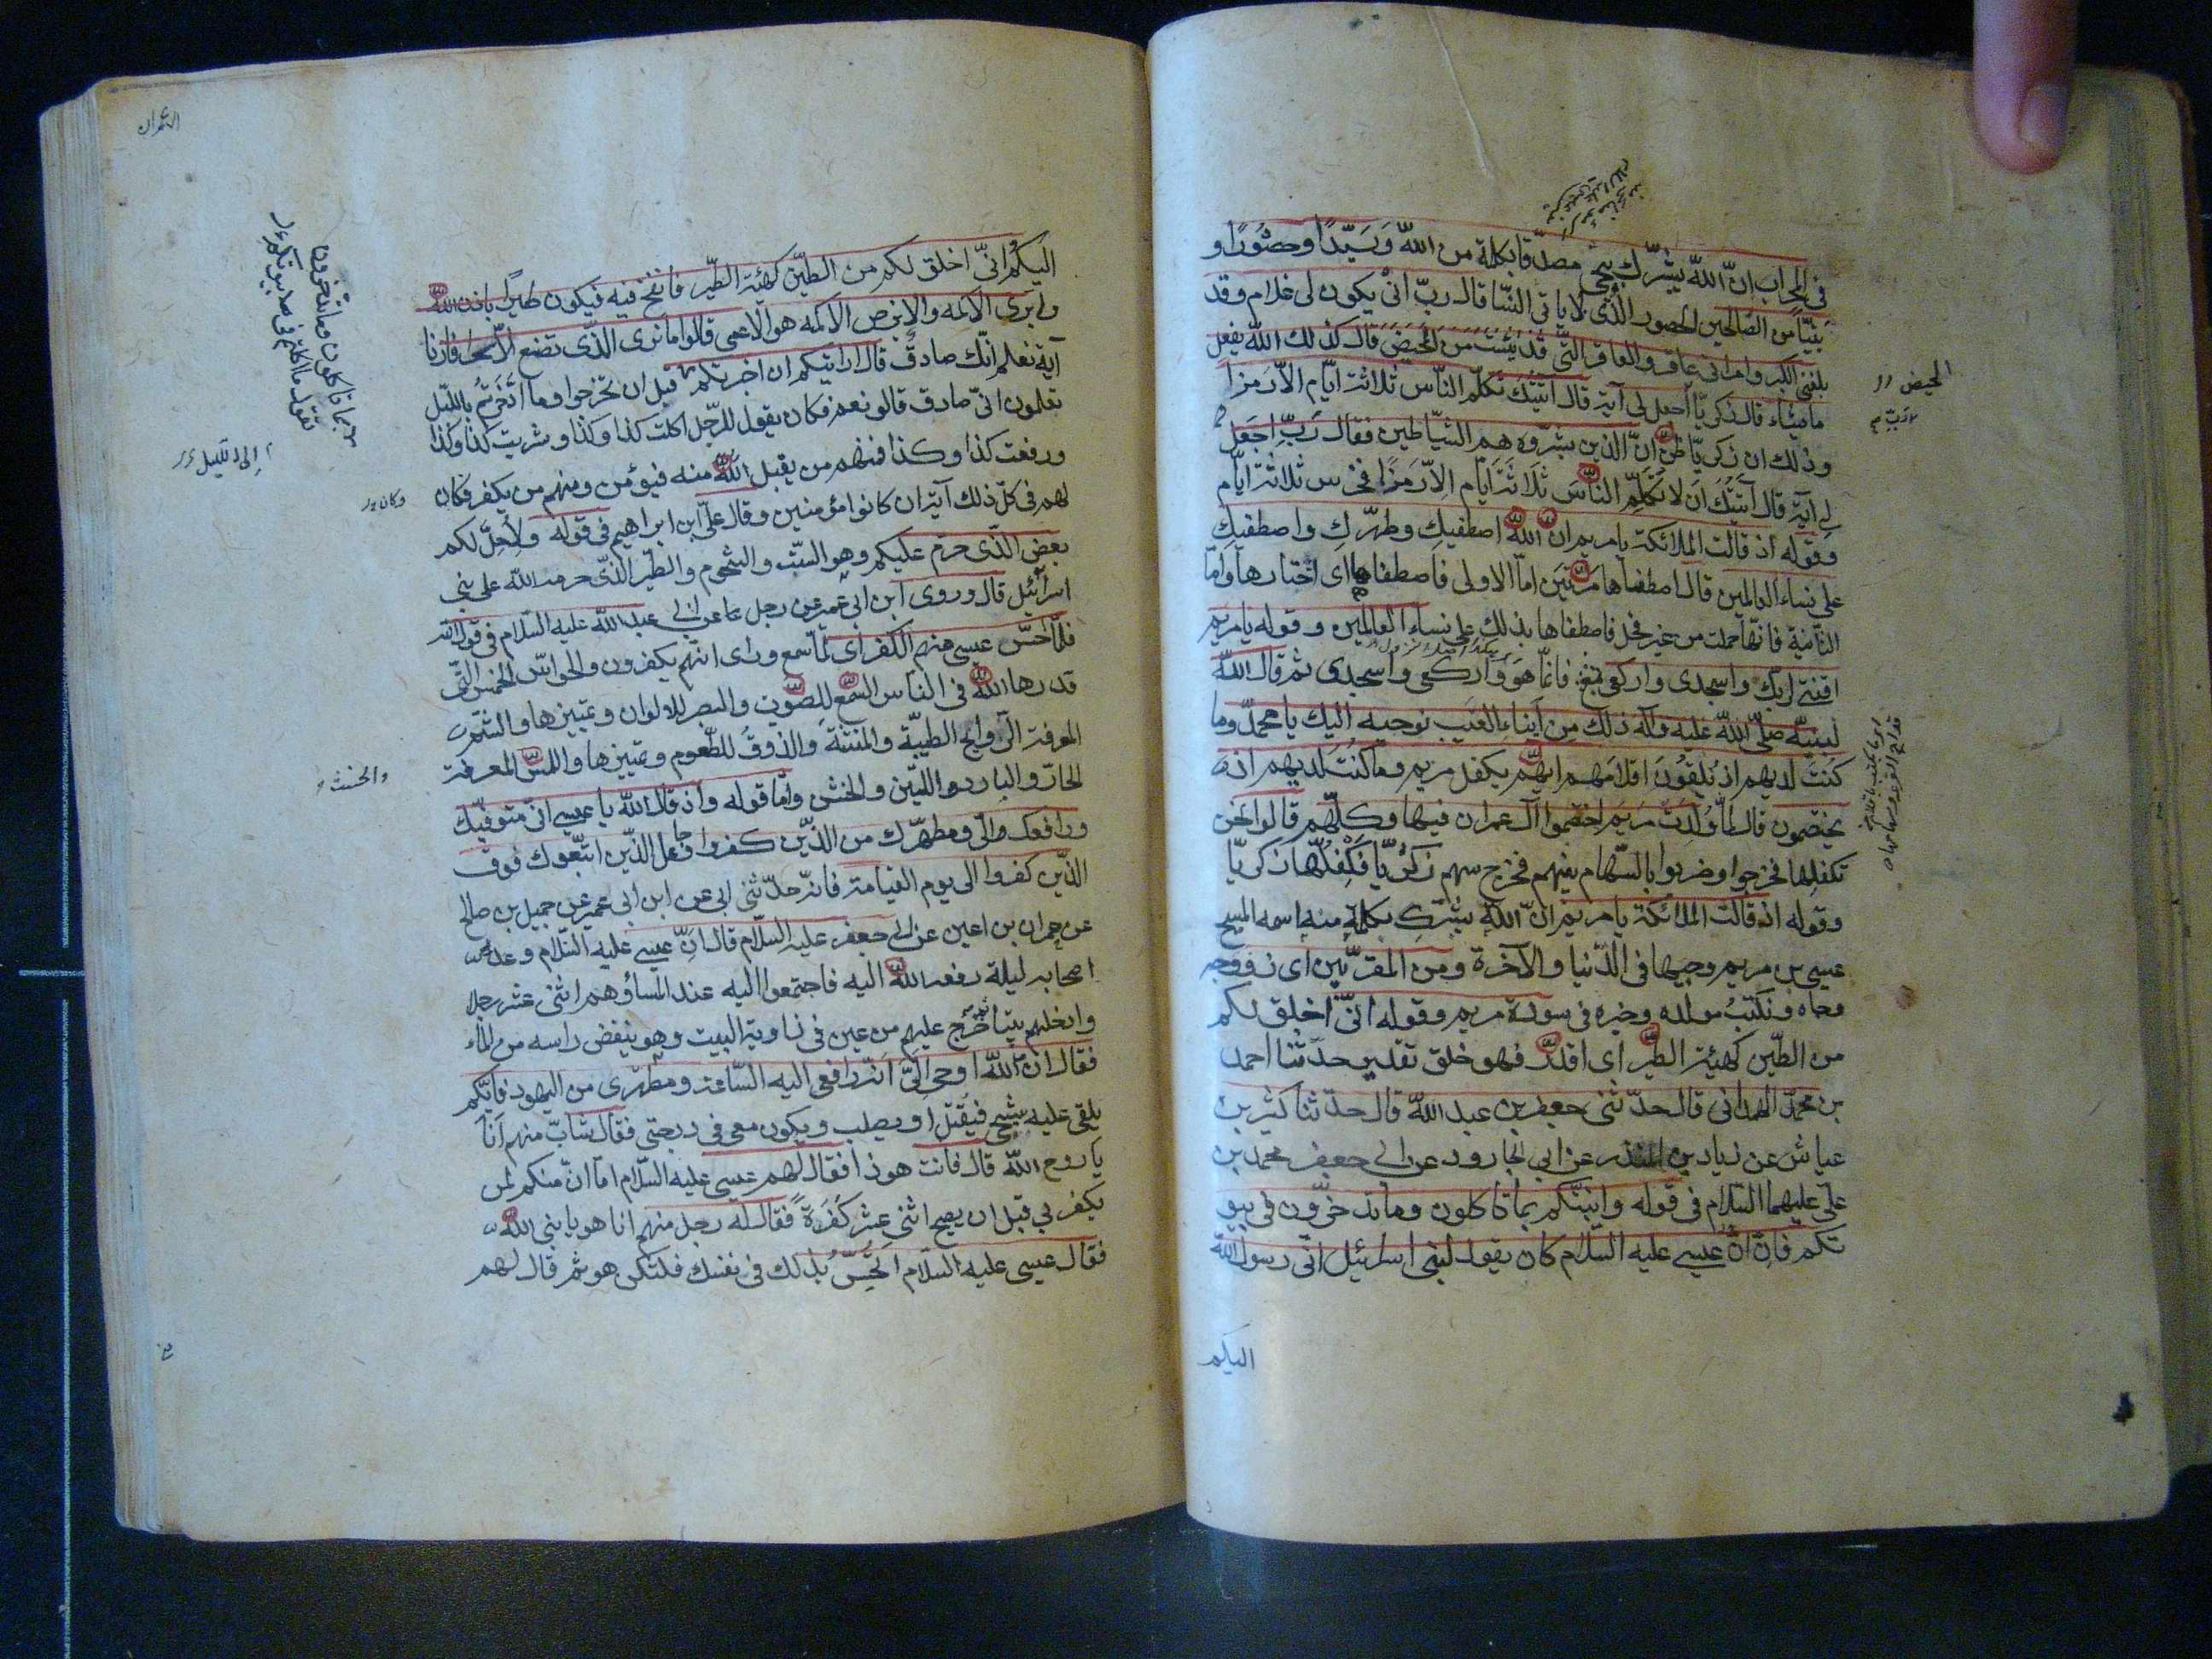 في المحراب ان الله يبشرك بيحيى مصدقا بكلمة من الله وسيدا وحصورا و
نبيا من الصالحين الحصور الذي لا ياتي النسا قال رب انى يكون لي غلام وقد
بلغني الكبر وامراتي عاقر والعاقر التي قد يئست من المحيض قال كذلك الله يفعل
ما يشاء قال زكريا رب اجعل لي آية قال آيتك الا تكلم الناس ثلاثة ايام الا رمزا
وذلك ان زكريا ظن ان الذين بشروه هم الشياطين فقال رب اجعل
لي آية قال آيتك ان لا تكلم الناس ثلاثة ايام الا رمزا فخرس ثلاثة ايام
وقوله اذ قالت الملائكة يا مريم ان الله اصطفيك وطهرك واصطفيك
على نساء العالمين قال اصطفاها مرتين اما الاولى فاصطفاها اى اختارها واما
الثانية فانها حملت من غير فحل فاصطفاها بذلك على نساء العالمين وقوله يا مريم
اقنتي لربك واسجدى واركعي فانما هو واركعي واسجدى ثم قال الله
لنبيه صلى الله عليه وآله ذلك من انباء الغيب نوحيه اليك يا محمد وما
كنت لديهم اذ يلقون اقلامهم ايهم يكفل مريم وما كنت لديهم اذ
يختصمون قال لما ولدت مريم اختصموا آل عمران فيها وكلهم قالوا نحن
نكفلها فخرجوا وضربوا بالسهام بينهم فخرج سهم زكريا فكفلها زكريا
وقوله اذ قالت الملائكة يا مريم ان الله يبشرك بكلمة منه اسمه المسيح
عيسى بن مريم وجيها في الدنيا والآخرة ومن المقربين اى ذو وجه
وجاه ونكتب مولده وخبره في سورة مريم وقوله انى اخلق لكم
من الطين كهيئة الطير اى اقدر فهو خلق تقدير حدثنا احمد
بن محمد الهمداني قال حدثني جعفر بن عبد الله قال حدثنا كثير بن
عياش عن زياد بن المنذر عن ابي الجارود عن ابي جعفر محمد بن
علي عليهما السلام في قوله وانبئكم بما تاكلون وما تدخرون في بيو
تكم فان ان عيسى عليه السلام كان يقول لبني اسرائيل اني رسول الله
المحيض
اليكم
العمران
اليكم انى اخلق لكم من الطين كهيئة الطير فانفخ فيه فيكون طيرا باذن الله
وابرئ الاكمه والابرص الاكمه هو الاعمى قالوا ما نرى الذى تصنع الا سحرا فارنا
آية نعلم انك صادق قال ارايتكم ان اخبرتكم قبل ان تخرجوا وما ادخرتم بالليل
تعلمون انى صادق قالو نعم فكان يقول للرجل اكلت كذا وكذا وشربت كذا وكذا
ورفعت كذا وكذا فمنهم من يقبل منه فيؤمن ومنهم من يكفر فكان
لهم في كل ذلك آية ان كانوا مؤمنين وقال على ابن ابراهيم في قوله ولاحل لكم
بعض الذى حرم عليكم وهو السبت والشحوم والطير الذى حرمه الله على بني
اسرائيل قال وروى ابن ابي عمير عن رجل عن ابى عبد الله عليه السلام في قول الله
فلما احس عيسى منهم الكفر اى لما سمع وراى انهم يكفرون والحواس الخمس التى
قدرها الله في الناس السمع للصوت والبصر للالوان وتمييزها والشم
لمعرفة الروايح الطيبة والمنتنة والذوق للطعوم وتمييزها واللمس لمعرفة
الحار والبارد واللين والخشن واما قوله واذ قال الله يا عيسى انى متوفيك
ورافعك الى ومطهرك من الذين كفروا وجاعل الذين اتبعوك فوق
الذين كفروا الى يوم القيامة فانه حدثني ابي عن ابن ابي عمير عن جميل بن صالح
عن حمران بن اعين عن ابي جعفر عليه السلام قال ان عيسى عليه السلام وعد
اصحابه ليلة رفعه الله اليه فاجتمعوا اليه عند المسأ وهم اثنى عشر رجلا
وادخلهم بيتا ثم خرج عليهم من عين في زاوية البيت وهو ينفض راسه من الماء
فقال ان الله اوحى الى انه رافعي اليه الساعة ومطهرى من اليهود فايكم
يلقى عليه شبحى فيقتل او يصلب ويكون معى في درجتى فقال شاب منهم انا
يا روح الله قال فانت هوذا فقال لهم عيسى عليه السلام اما ان منكم لمن
يكفر بي قبل ان يصبح اثنى عشر كفرة فقال له رجل منهم انا هو يا نبى الله
فقال عيسى عليه السلام اتحس بذلك في نفسك فلتكن هو ثم قال لهم
بما تاكلون وما تدخرون
وكان